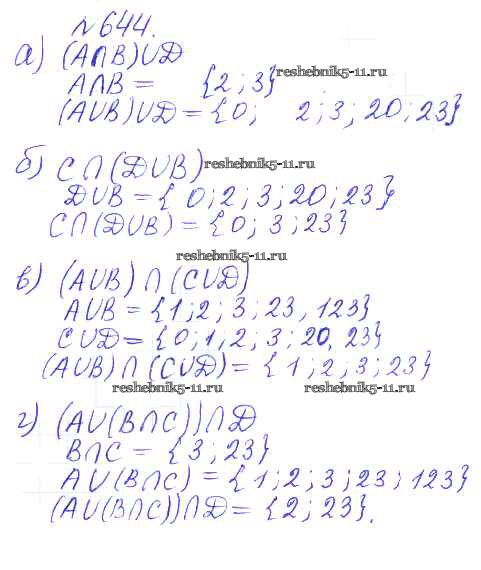 №644.
а) (A∩B)∪D
A∩B = {2;3} reshebnik5-11.ru
(A∪B)∪D = {0; 2;3;20;23}
б) C∩(D∪B) reshebnik5-11.ru
D∪B = { 0;2;3;20;23}
C∩(D∪B) = {0;3;23}
reshebnik5-11.ru
в) (A∪B)∩(C∪D)
A∪B = {1;2;3;23,123}
C∪D = {0;1,2;3;20,23}
(A∪B)∩(C∪D) = {1;2;3;23}
reshebnik5-11.ru reshebnik5-11.ru
г) (A∪(B∩C))∩D
B∩C = {3;23}
A∪(B∩C) = {1;2;3;23;123}
(A∪(B∩C))∩D = {2;23}.